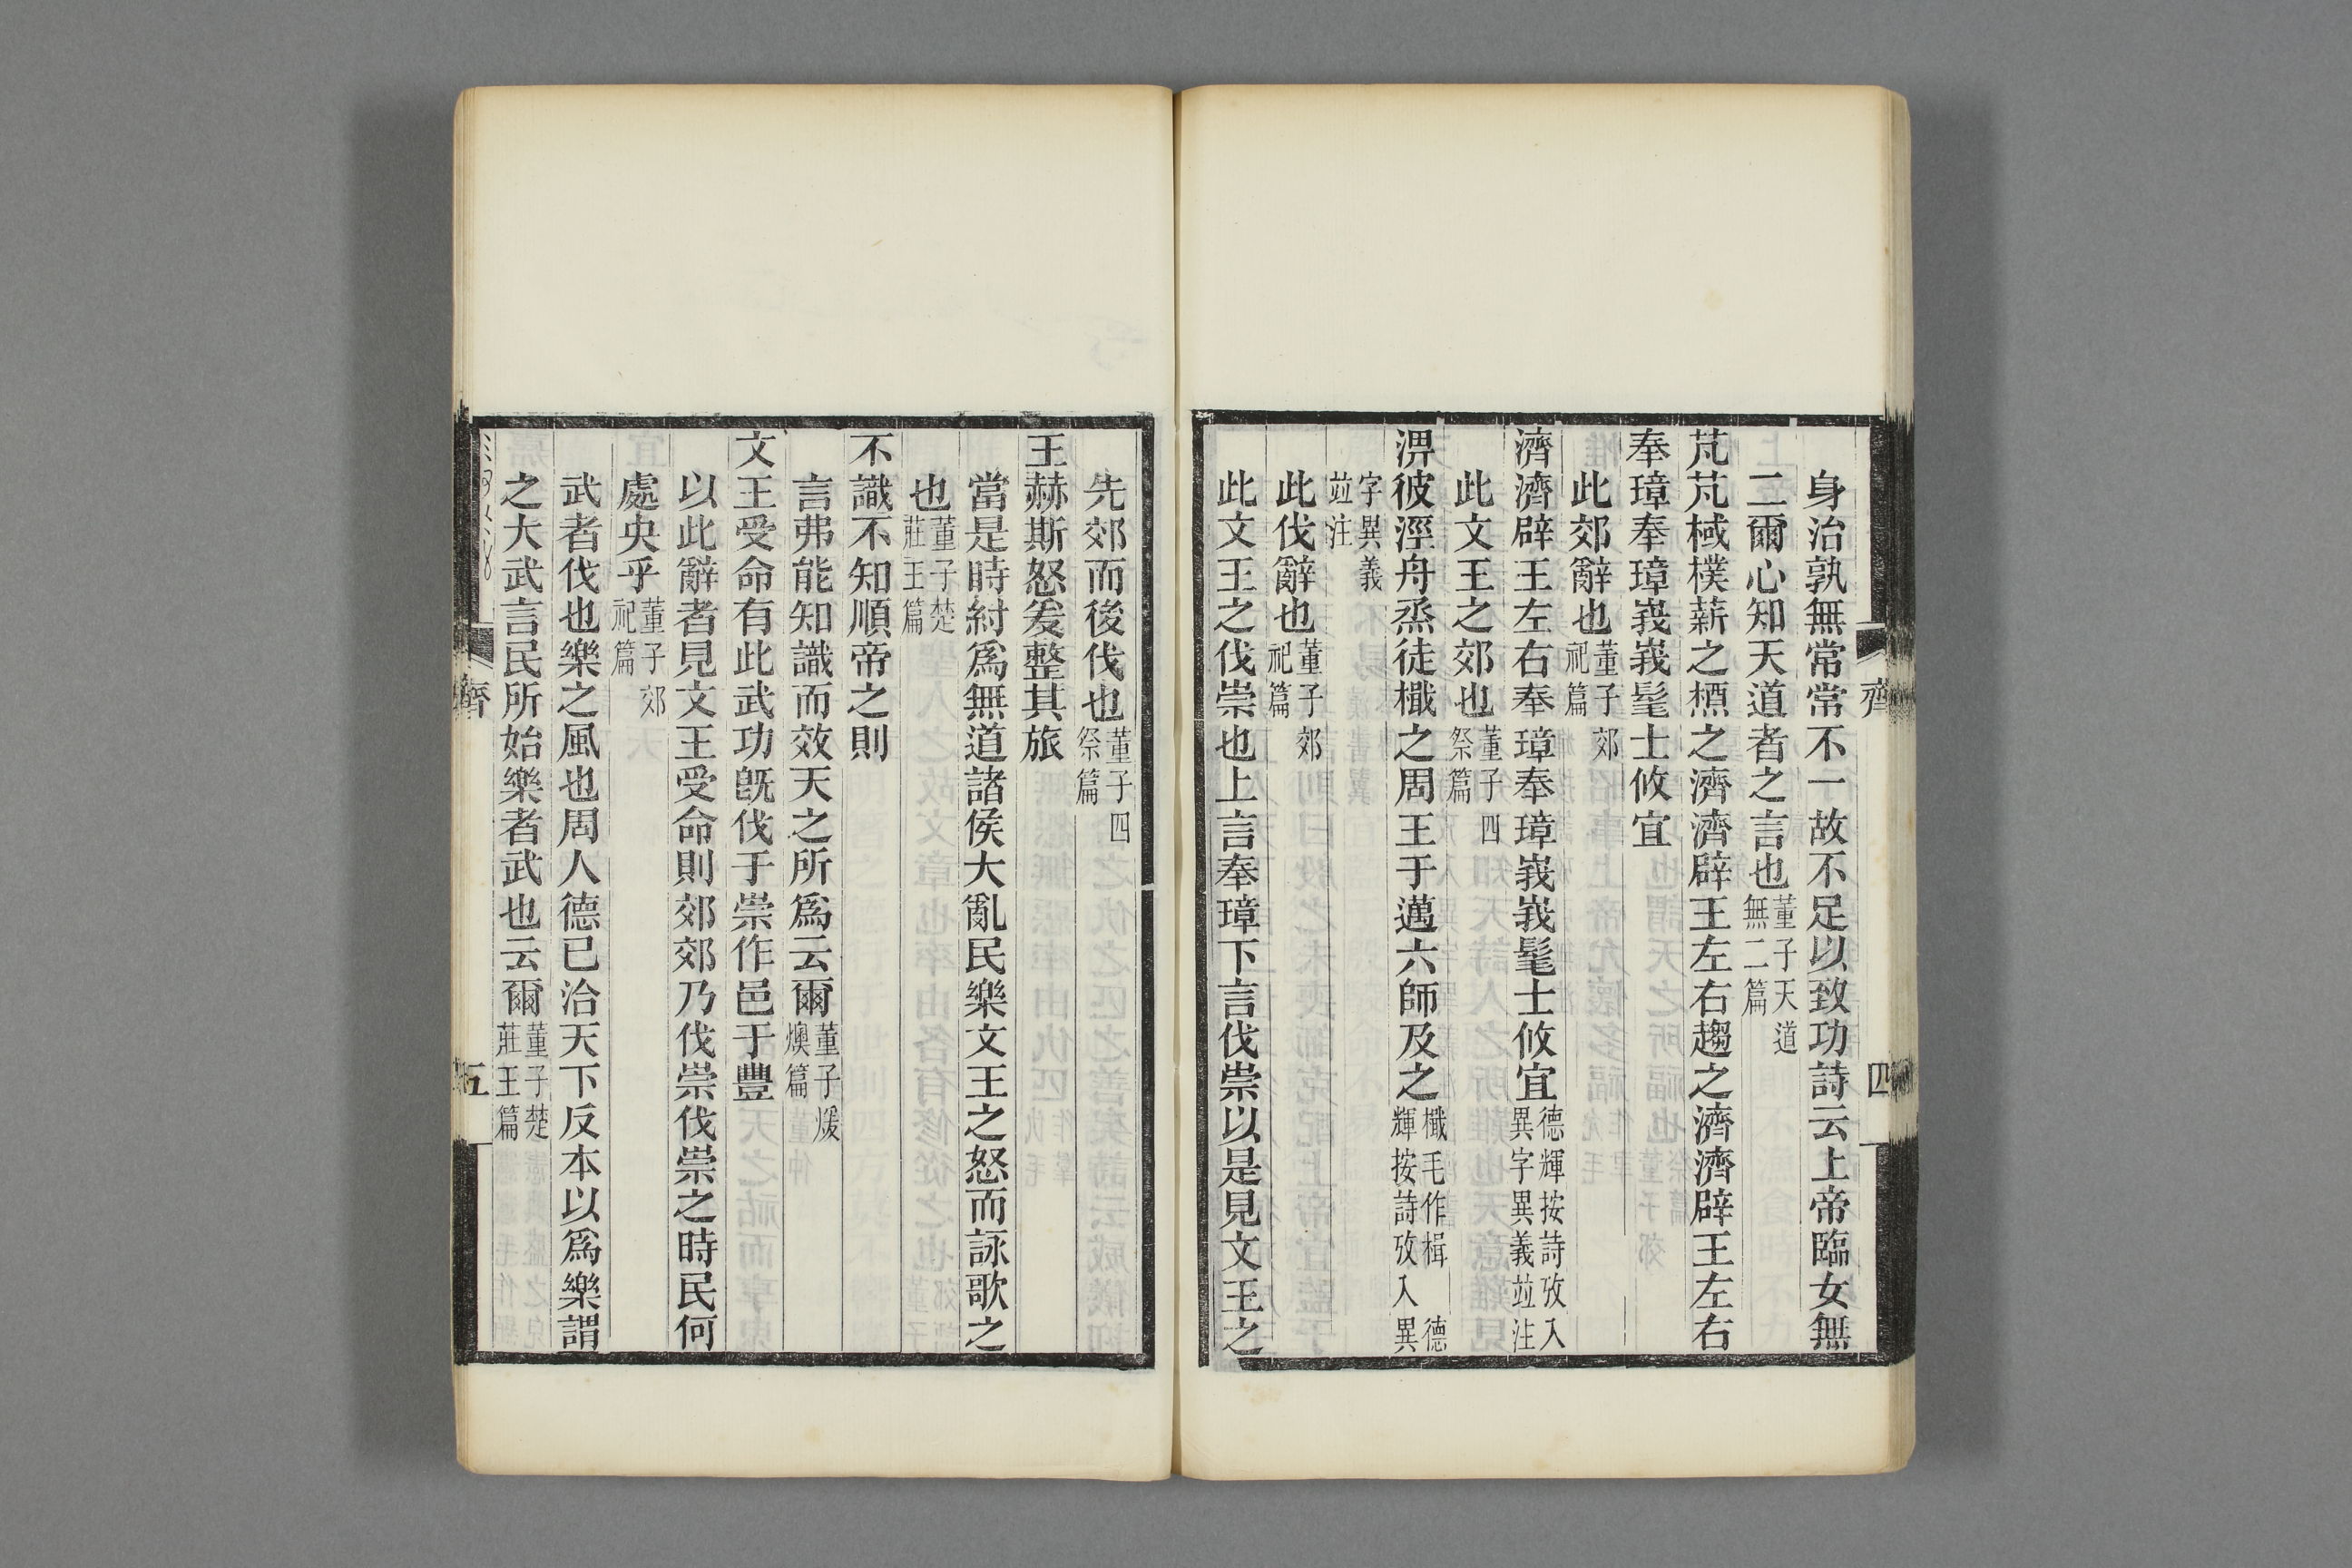 身治孰無常常不一故不足以致功詩云上帝臨女無
二爾心知天道者之言也董子天道無二篇
芃芃棫樸薪之槱之濟濟辟王左右趨之濟濟辟王左右
奉璋奉璋峩峩髦士攸宜
此郊辭也董子郊祀篇
濟濟辟王左右奉璋奉璋峩峩髦士攸宜德輝按詩攷入異字異義竝注
此文王之郊也董子四祭篇
淠彼涇舟烝徒檝之周王于邁六師及之檝毛作楫 德輝按詩攷入異
字異義竝注
此伐辭也董子郊祀篇
此文王之伐崇也上言奉璋下言伐崇以是見文王之
齊
四
先郊而後伐也董子四祭篇
王赫斯怒爰整其旅
當是時紂爲無道諸侯大亂民樂文王之怒而詠歌之
也董子楚莊王篇
不識不知順帝之則
言弗能知識而效天之所爲云爾董子煖燠篇
文王受命有此武功旣伐于崇作邑于豐
以此辭者見文王受命則郊郊乃伐崇伐崇之時民何
處央乎董子郊祀篇
武者伐也樂之風也周人德已洽天下反本以爲樂謂
之大武言民所始樂者武也云爾董子楚莊王篇
齊
五